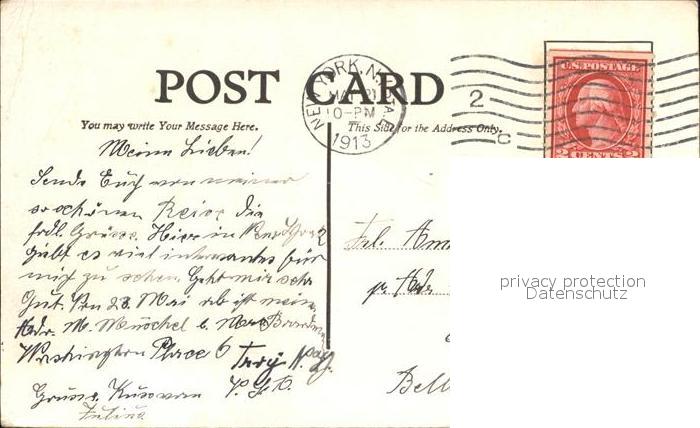 POST CARD
NEW YORK, N.Y. STA.
MA 21
0-PM
1913
2
C
U.S. POSTAGE
2 CENTS 2
You may write Your Message Here.
This Side for the Address Only.
Meine Lieben!
Sende Euch von meiner
so schönen Reise die
frdl. Grüsse. Hier in New York
gibt es viel interessantes für
mich zu sehen. Geht mir sehr
Gut. Mai ab ist meine
Adr. M.
Washington Place 6 Troy N.Y.
Gruss u. Kuss von
Julius
Frl.
p. Adr.
Bell
privacy protection
Datenschutz